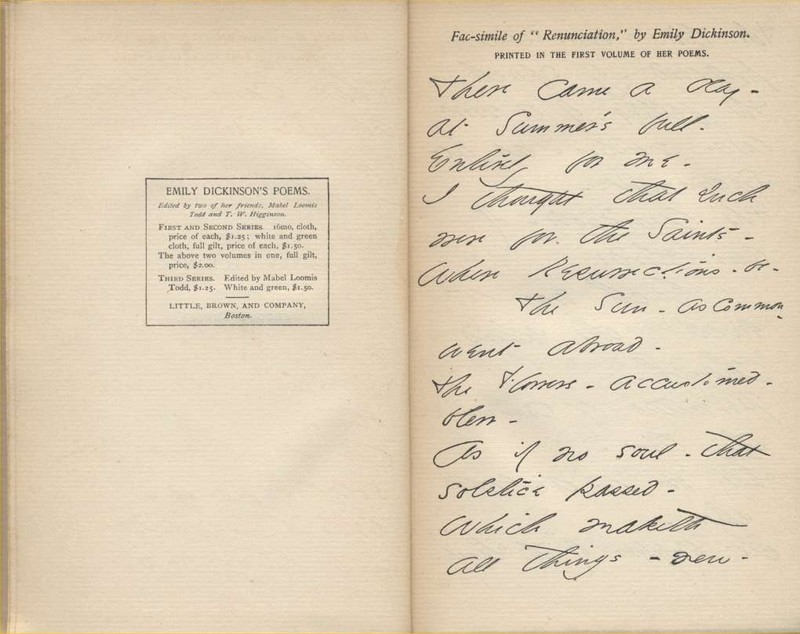 EMILY DICKINSON'S POEMS.
Edited by two of her friends, Mabel Loomis
Todd and T. W. Higginson.
FIRST AND SECOND SERIES. 16mo, cloth,
price of each, $1.25; white and green
cloth, full gilt, price of each, $1.50.
The above two volumes in one, full gilt,
price, $2.00.
THIRD SERIES. Edited by Mabel Loomis
Todd, $1.25. White and green, $1.50.
LITTLE, BROWN, AND COMPANY,
Boston.
Fac-simile of "Renunciation," by Emily Dickinson.
PRINTED IN THE FIRST VOLUME OF HER POEMS.
There came a day -
at Summer's full -
Entirely for me -
I thought that such
were for the Saints -
Where Resurrections - be -
The Sun - as common
went abroad -
The Flowers - accustomed -
blew -
As if no soul - that
solstice passed -
Which maketh
all things - new -